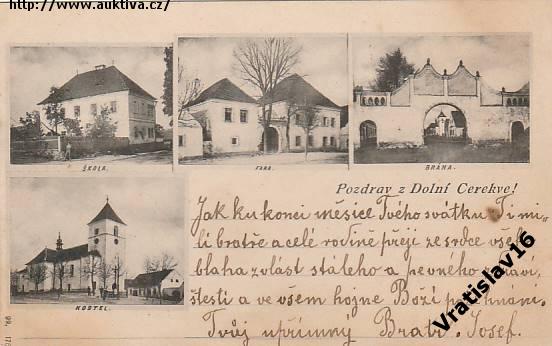 http://www.auktiva.cz/
ŠKOLA.
FARA.
BRÁNA.
Pozdrav z Dolní Cerekve!
Jak ku konci měsíce Tvého svátku Ti mi-
lí bratře a celé rodině přeji ze srdce všeho
blaha zvlášt stálého a pevného
štěstí a ve všem hojné Boží
Tvůj upřímný Bratr Josef.
KOSTEL.
Vratislav16